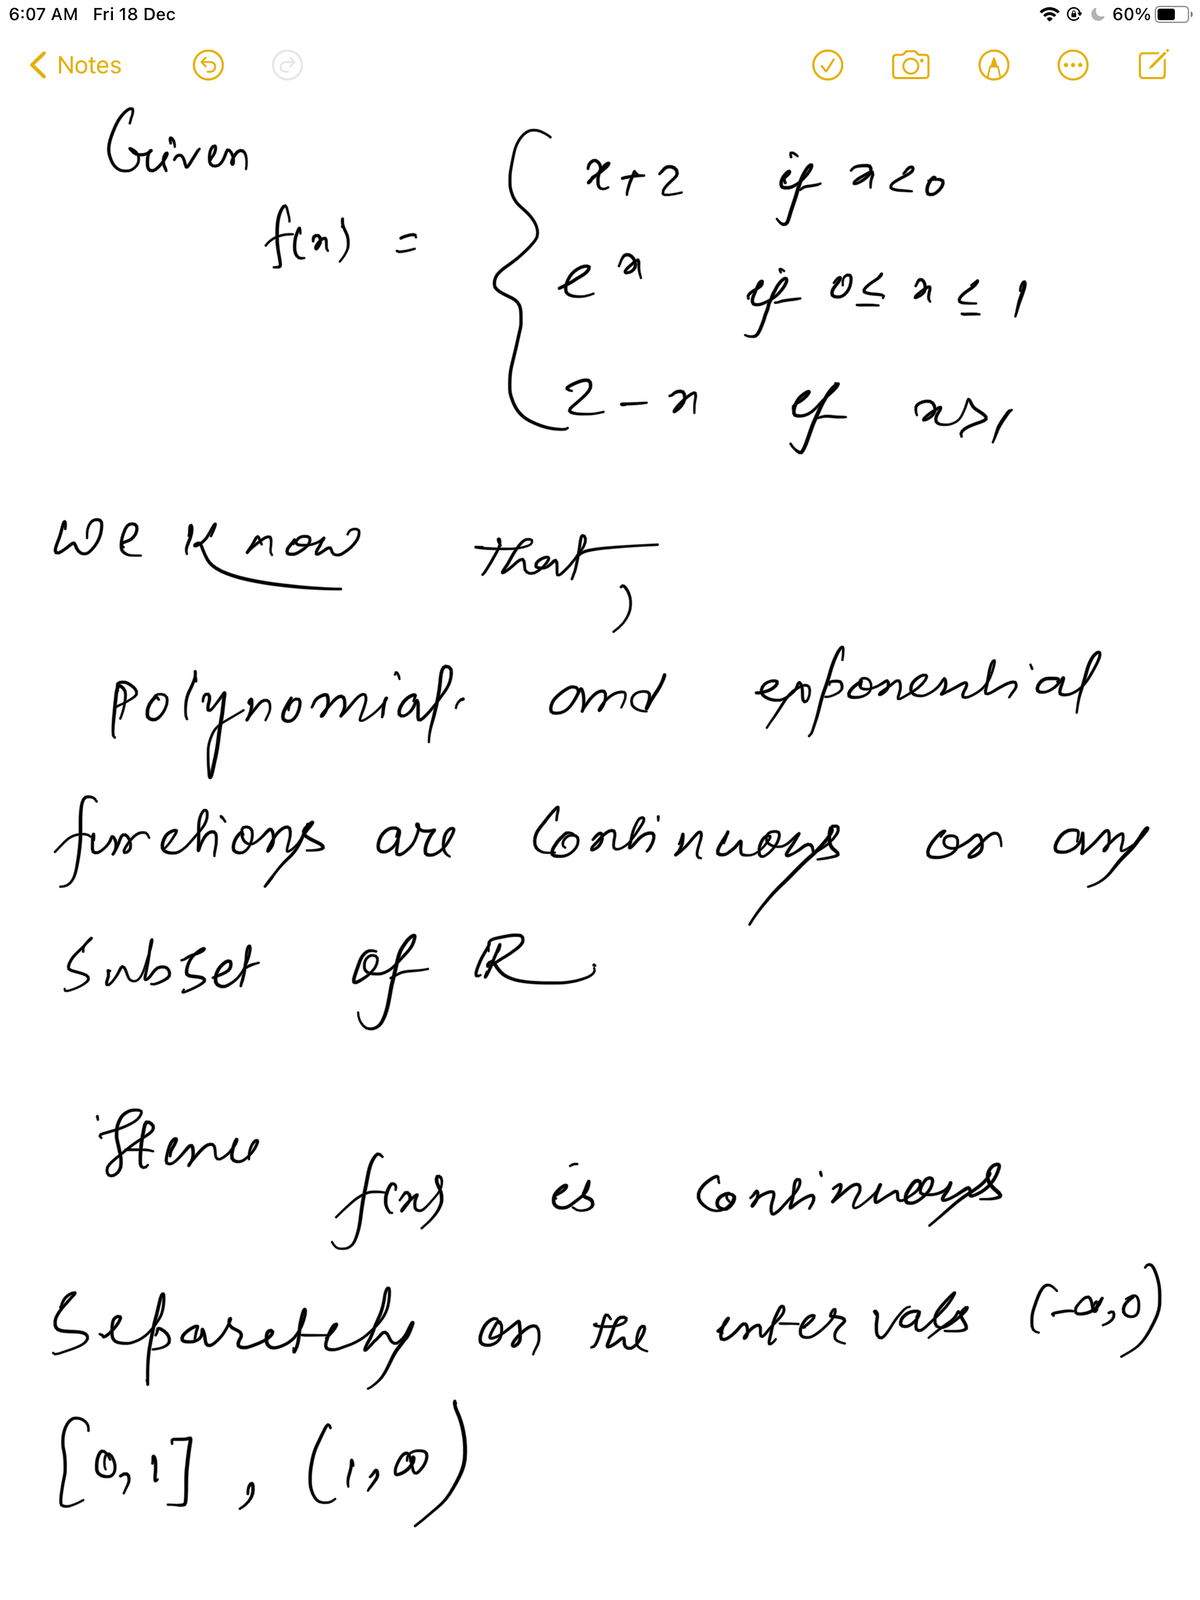 6:07 AM Fri 18 Dec 60%
Notes
Given
f(x) = { x+2 if x<0
e^x if 0≤x≤1
2-x if x>1
we know that,
polynomial and exponential
functions are continuous on any
subset of ℝ
Hence
f(x) is continuous
separetely on the intervals (-∞,0)
[0,1], (1,∞)